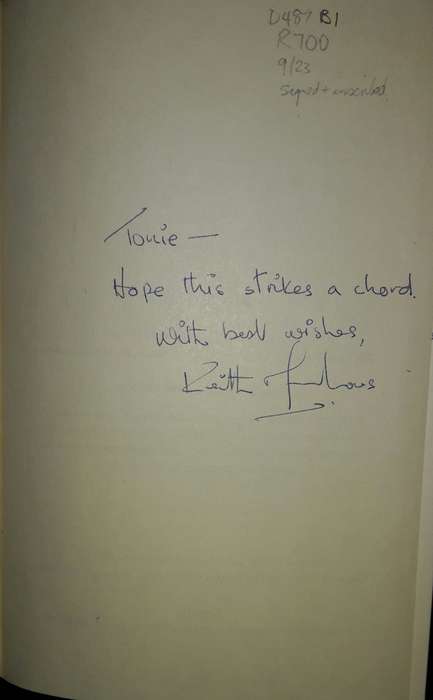 U487 B1
R700
9/23
signed + inscribed.
Tonie —
Hope this strikes a chord.
With best wishes,
Keith